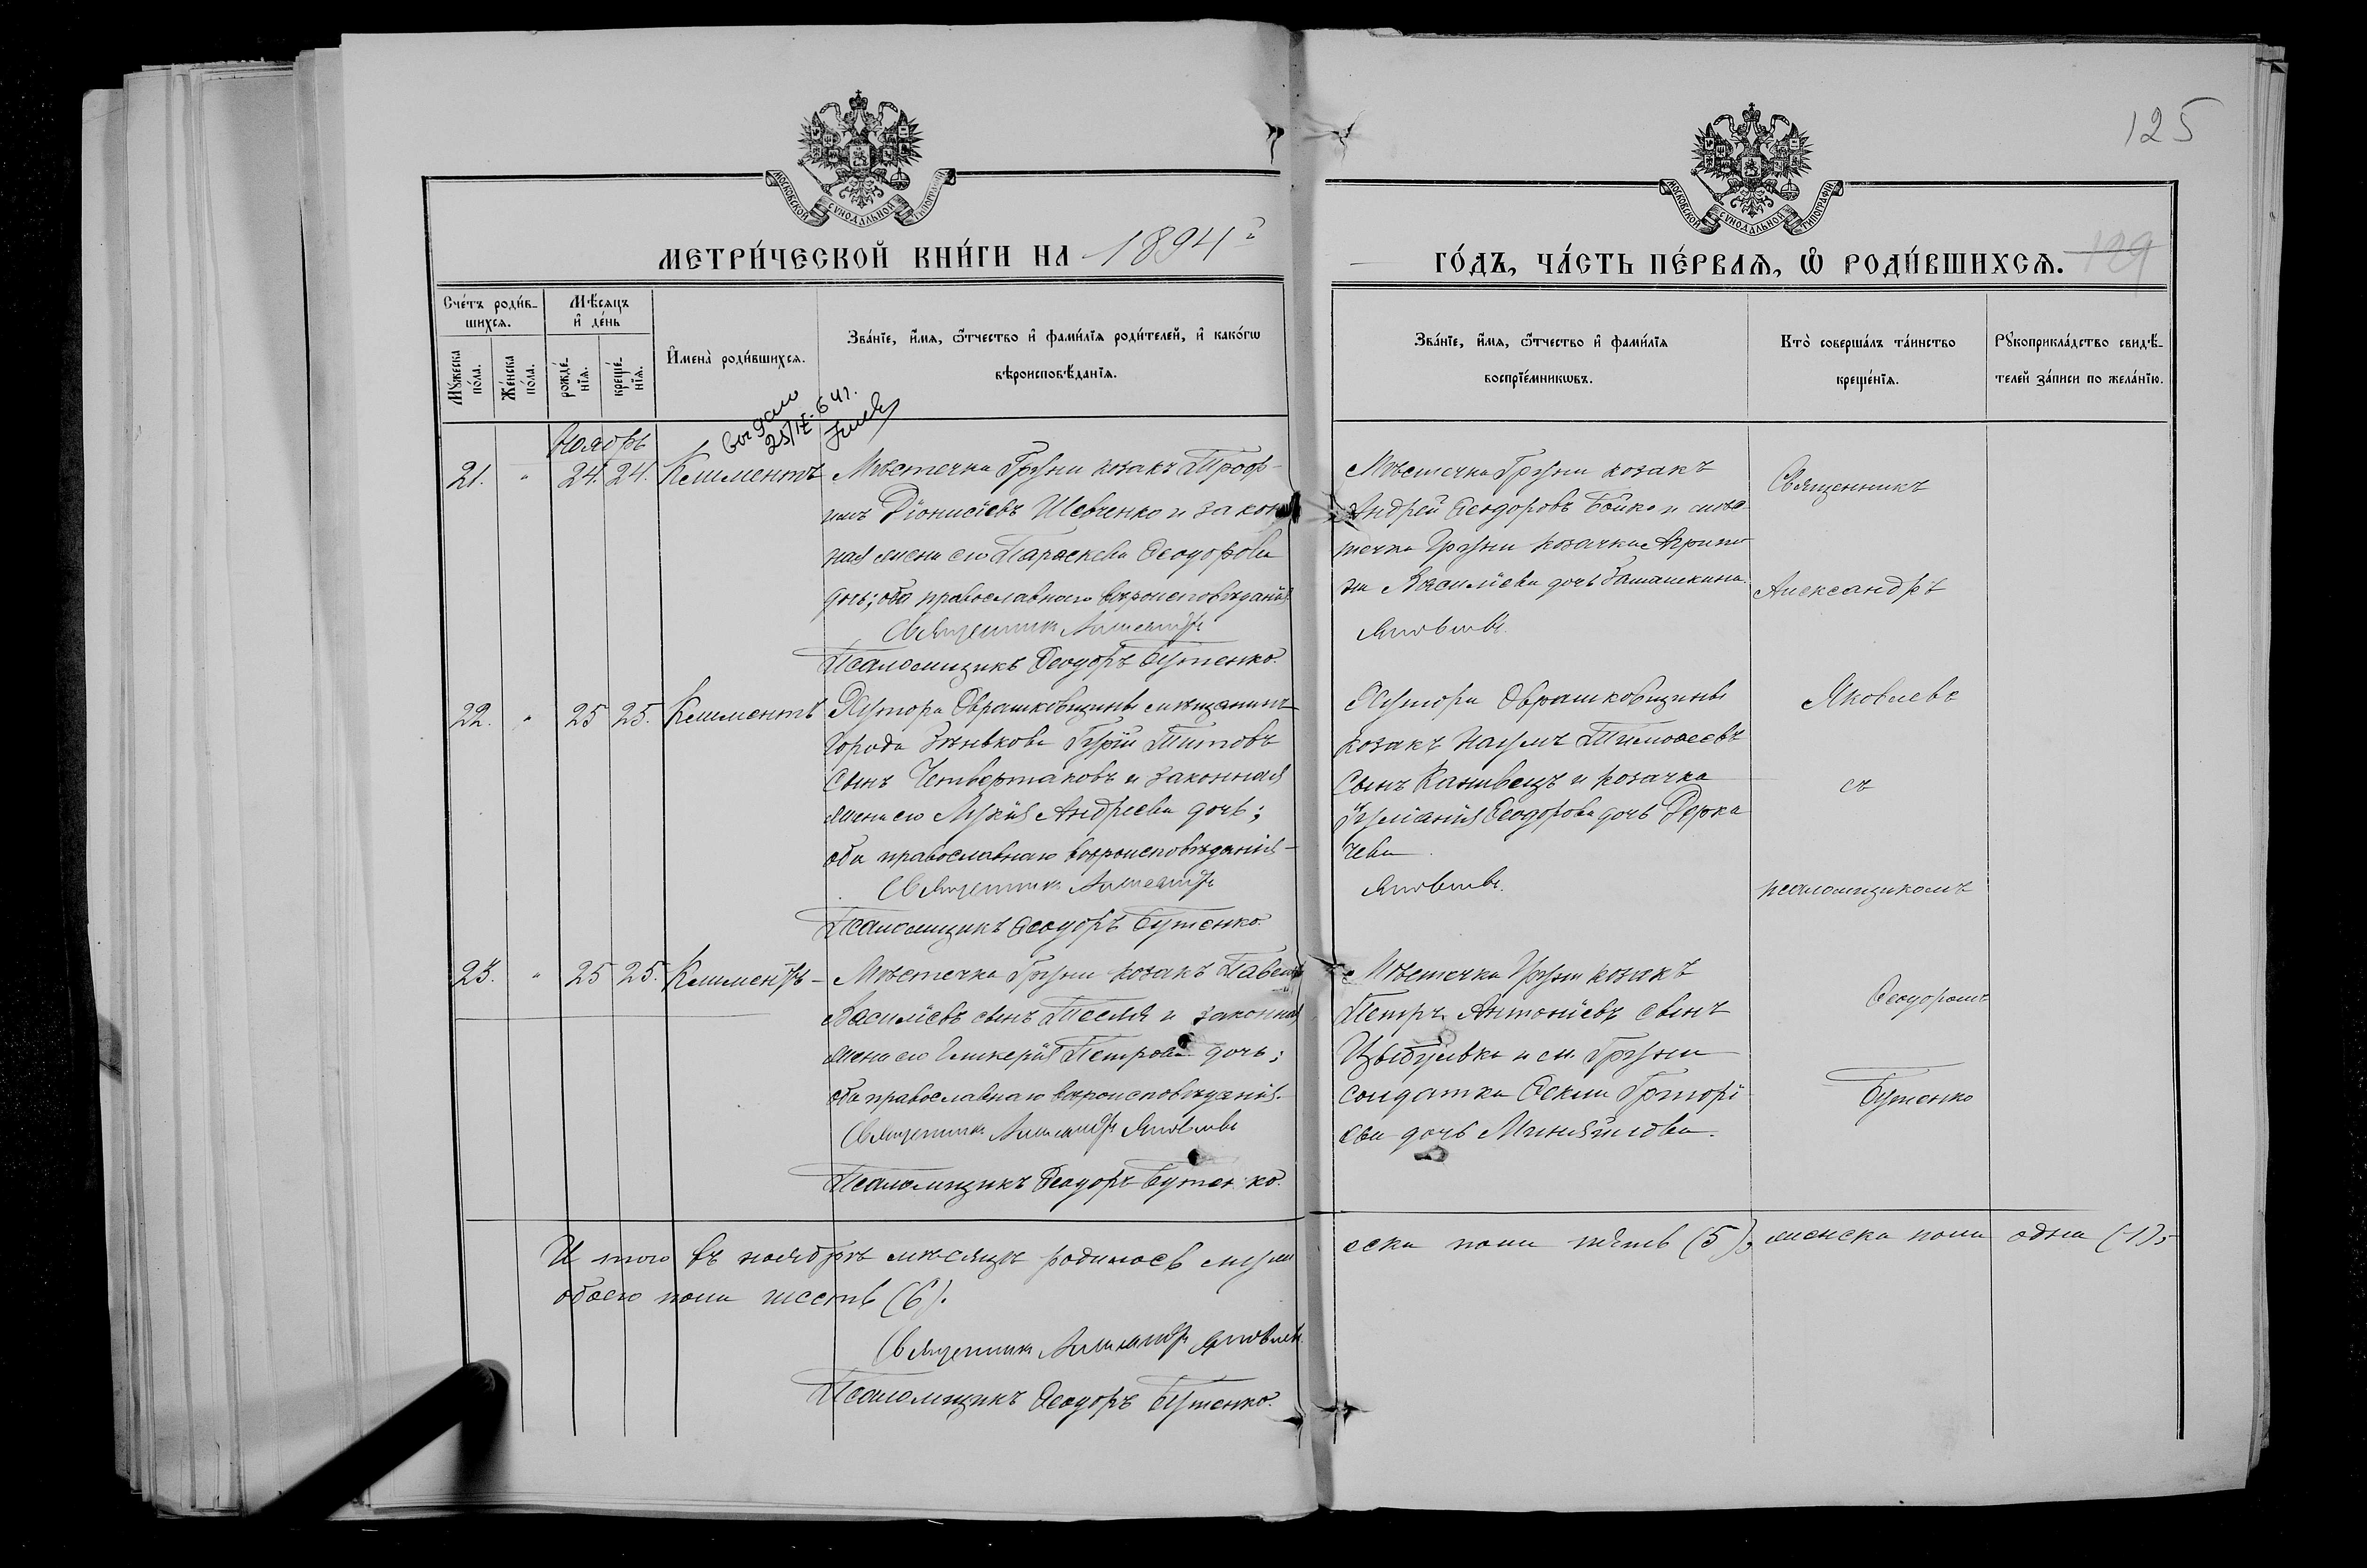 125
МОСКОВСКОЙ СѴНОДАЛЬНОЙ ТИПОГРАФІИ
МОСКОВСКОЙ СѴНОДАЛЬНОЙ ТИПОГРАФІИ
МЕТРИ́ЧЕСКОЙ КНИ́ГИ НА 1894 г
ГО́ДЪ, ЧА́СТЬ ПЕ́РВАЯ, Ѡ҆ РОДИ́ВШИХСЯ. 129
Сче́тъ роди́в-
шихся.
Мꙋ́жеска
по́ла.
Же́нска
по́ла.
Мѣ́сяцъ
и҆ де́нь
рожде́-
нїя.
креще́-
нїя.
И҆мена̀ роди́вшихся.
Зва́нїе, и҆́мя, ѻ҆́тчество и҆ фами́лїя роди́телей, и҆ како́гѡ
вѣроисповѣ́данїя.
Зва́нїе, и҆́мя, ѻ҆́тчество и҆ фами́лїя
воспрїе́мникѡвъ.
Кто̀ соверша́лъ та́инство
креще́нїя.
Рꙋкоприкла́дство свидѣ́-
телей за́писи по жела́нїю.
выдано
Ноябрь
21. " 24. 24. Климентъ
Мѣстечка Груни козакъ Троф-
имъ Діонисіевъ Шевченко и закон
ная жена его Параскева Ѳеодорова
дочь; оба православнаго вѣроисповѣданія
Священникъ Александръ
Псаломщикъ Ѳеодоръ Бутенко.
Мѣстечка Груни козакъ
Андрей Ѳеодоровъ Бойко и мѣс
течка Груни козачка Агрипи
на Васильева дочь
Яковлевъ.
22. " 25 25. Климентъ
Хутора Оврашковщины мѣщанинъ
города Зѣнькова Гурій Титовъ
сынъ Четвертаковъ и законная
жена его Лукія Андреева дочь;
оба православнаго вѣроисповѣданія
Священникъ Александръ
Псаломщикъ Ѳеодоръ Бутенко.
Хутора Оврашковщины
козакъ Наумъ Тимоѳеевъ
сынъ Канивецъ и козачка
Іуліанія Ѳеодорова дочь Дерка
чева.
Яковлевъ.
23. " 25 25. Климентъ
Мѣстечка Груни козакъ Павелъ
Василіевъ сынъ Тесля и законная
жена его Гликерія Петрова дочь;
оба православнаго вѣроисповѣданія.
Священникъ Александръ Яковлевъ
Псаломщикъ Ѳеодоръ Бутенко.
Мѣстечка Груни козакъ
Петръ Антоніевъ сынъ
Цыбулька и м. Груни
солдатка Ѳекла Григорі
ева дочь
Священникъ
Александръ
Яковлевъ
съ
псаломщикомъ
Ѳеодоромъ
Бутенко
Итого въ ноябрѣ мѣсяцѣ родилось муж
еска пола пять (5), женска пола одна (1),
обоего пола шесть (6).
Священникъ Александръ Яковлевъ
Псаломщикъ Ѳеодоръ Бутенко.